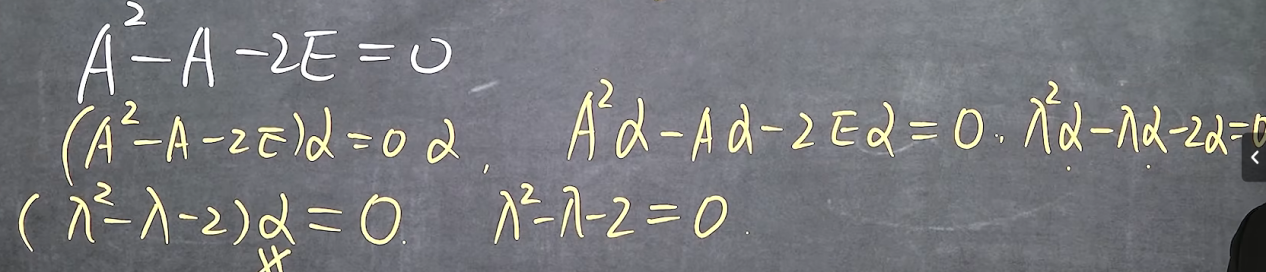 A²-A-2E=0
(A²-A-2E)α=0α, A²α-Aα-2Eα=0. λ²α-λα-2α=0
(λ²-λ-2)α=0. λ²-λ-2=0.